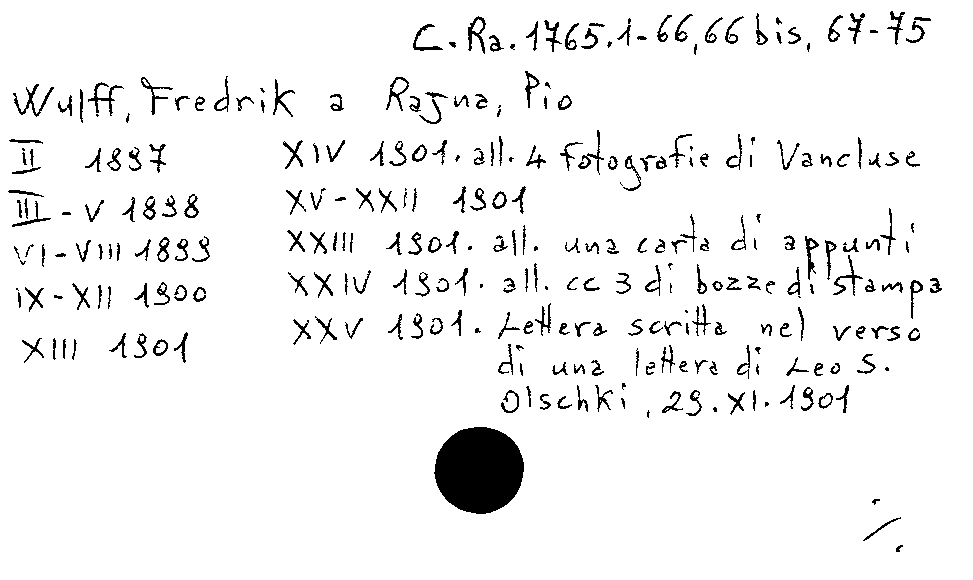 C.Ra.1765.1-66,66 bis, 67-75
Wulff, Fredrik a Rajna, Pio
II 1897
III - V 1898
VI - VIII 1899
IX - XII 1900
XIII 1901
XIV 1901. all. 4 fotografie di Vancluse
XV - XXII 1901
XXIII 1901. all. una carta di appunti
XXIV 1901. all. cc 3 di bozze di stampa
XXV 1901. Lettera scritta nel verso
di una lettera di Leo S.
Olschki, 29. XI. 1901
./.